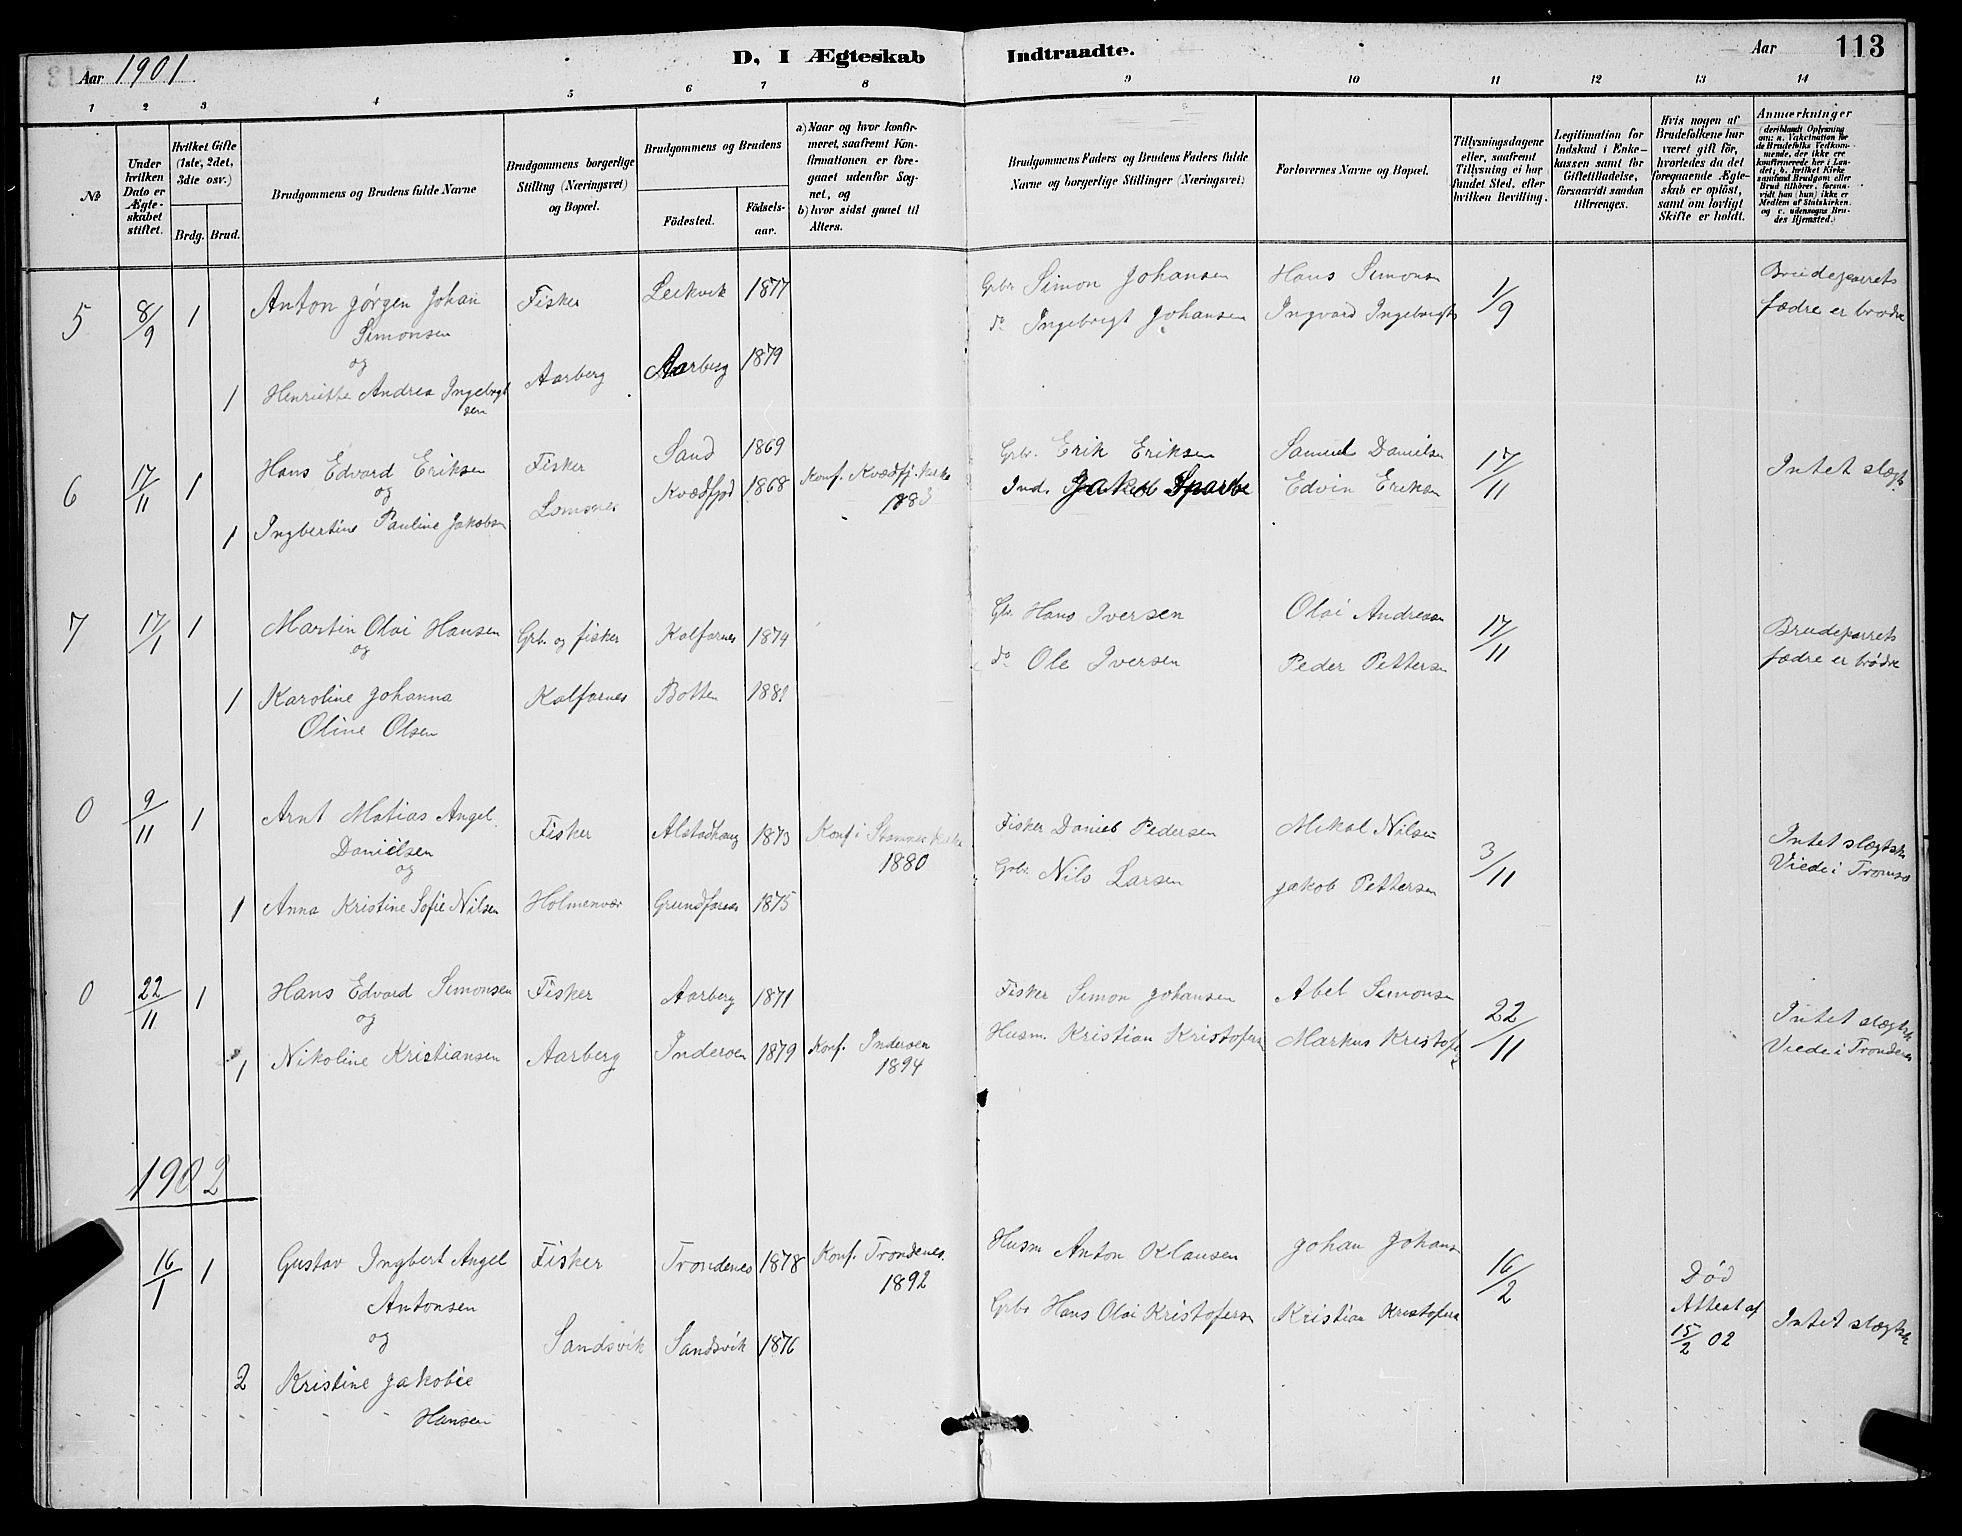 Aar 1901
D, I Ægteskab Indtraadte.
Aar 113
1 2 3 4 5 6 7 8 9 10 11 12 13 14
№
Under hvilken Dato er Ægteskabet stiftet.
Hvilket Gifte (1ste, 2det, 3die osv.)
Brdg. Brud.
Brudgommens og Brudens fulde Navne
Brudgommens borgerlige Stilling (Næringsvei) og Bopæl.
Brudgommens og Brudens
Födested.
Födselsaar.
a) Naar og hvor konfirmeret, saafremt Konfirmationen er foregaaet udenfor Sognet, og
b) hvor sidst gaaet til Alters.
Brudgommens Faders og Brudens Faders fulde Navne og borgerlige Stillinger (Næringsvei)
Forlovernes Navne og Bopæl.
Tillysningsdagene eller, saafremt Tillysning ei har fundet Sted, efter hvilken Bevilling.
Legitimation for Indskud i Enkekassen samt for Giftetilladelse, forsaavidt saadan tiltrænges.
Hvis nogen af Brudefolkene har været gift før, hvorledes da det foregaaende Ægteskab er opløst, samt om lovligt Skifte er holdt.
Anmærkninger
(deriblandt Oplysning om: a. Vakcination for de Brudefolks Vedkommende, der ikke ere konfirmerede her i Landet; b. hvilket Kirkesamfund Brudgom eller Brud tilhörer, forsaavidt han (hun) ikke er Medlem af Statskirken, og c. udensogns Brudes Hjemsted.)
5 8/9 1 Anton Jørgen Johan Fisker Leikvik 1877 Grbr. Simon Johansen Hans Simonsn 1/9 Brudeparrets
Simonsen do Ingebrigt Johansen Ingvard Ingebrigts fædre er brødre
og
1 Henriette Andrea Ingebrigtsen Aarberg Aarberg 1879
6 17/11 1 Hans Edvard Eriksen Fisker Sand 1869 Grbr. Erik Eriksen Samuel Danielsn 17/11 Intet slægt.
og
1 Ingbertine Pauline Jakobsn Kvædfjod 1868 Konf. Kvædfj. Kirke Ind. Jakob Sparbe Edvin Eriksn
7 17/1 1 Martin Olai Hansen Grb. og fisker Kalfarnes 1874 Gbr. Hans Iversen Olai Andreasn 17/11 Brudeparrets
og do Ole Iversen Peder Pettersn fædre er brödre
1 Karoline Johanna Kalfarnes Botten 1881
Oline Olsen
0 9/11 1 Arnt Matias Angel Fisker Alstadhaug 1873 Konf i Stamnes Kirke Fisker Daniel Pedersen Mikal Nilsen 3/11 Intet slægtsk
Danielsen 1880 Grbr. Nils Larsen Jakob Pettersen Viede i Tromsø
og
1 Anna Kristine Sofie Nilsen Holmenvær Grundfarnes 1875
0 22/11 1 Hans Edvard Simonsen Fisker Aarberg 1871 Fisker Simon Johansen Abel Simonsn 22/11 Intet slægtsk
og
1 Nikoline Kristiansen Aarberg Inderøen 1879 Konf. Inderøen 1894 Husm. Kristian Kristofersn Markus Kristofs Viede i Trondenes
1902
16/1 1 Gustav Ingbert Angel Fisker Trondenes 1878 Konf. Trondenes 1892 Husm Anton Klausen Johan Johans 16/2 Død
Antonsen Grbr Hans Olai Kristofersn Kristian Kristofersn Attest af 15/2 02 Intet slægtsk
og Sandsvik Sandsvik 1876
2 Kristine Jakobie
Hansen